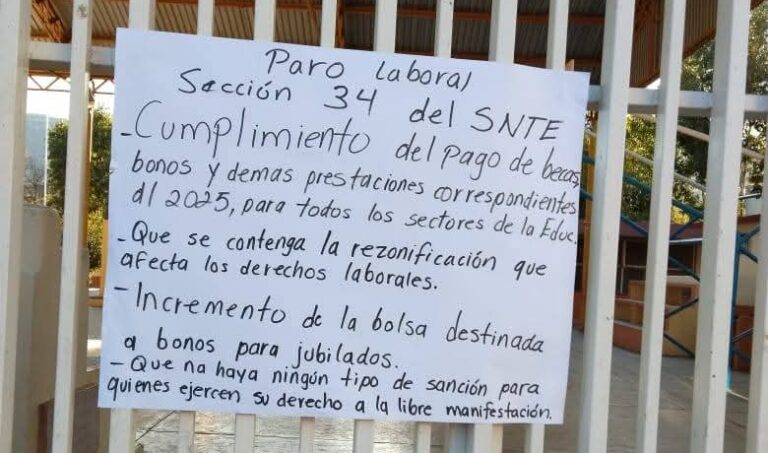 Paro Laboral
Sección 34 del SNTE
-Cumplimiento del pago de becas,
bonos y demas prestaciones correspondientes
al 2025, para todos los sectores de la Educ.
-Que se contenga la rezonificación que
afecta los derechos laborales.
-Incremento de la bolsa destinada
a bonos para jubilados.
-Que na haya ningún tipo de sanción para
quienes ejercen su derecho a la libre manifestación.